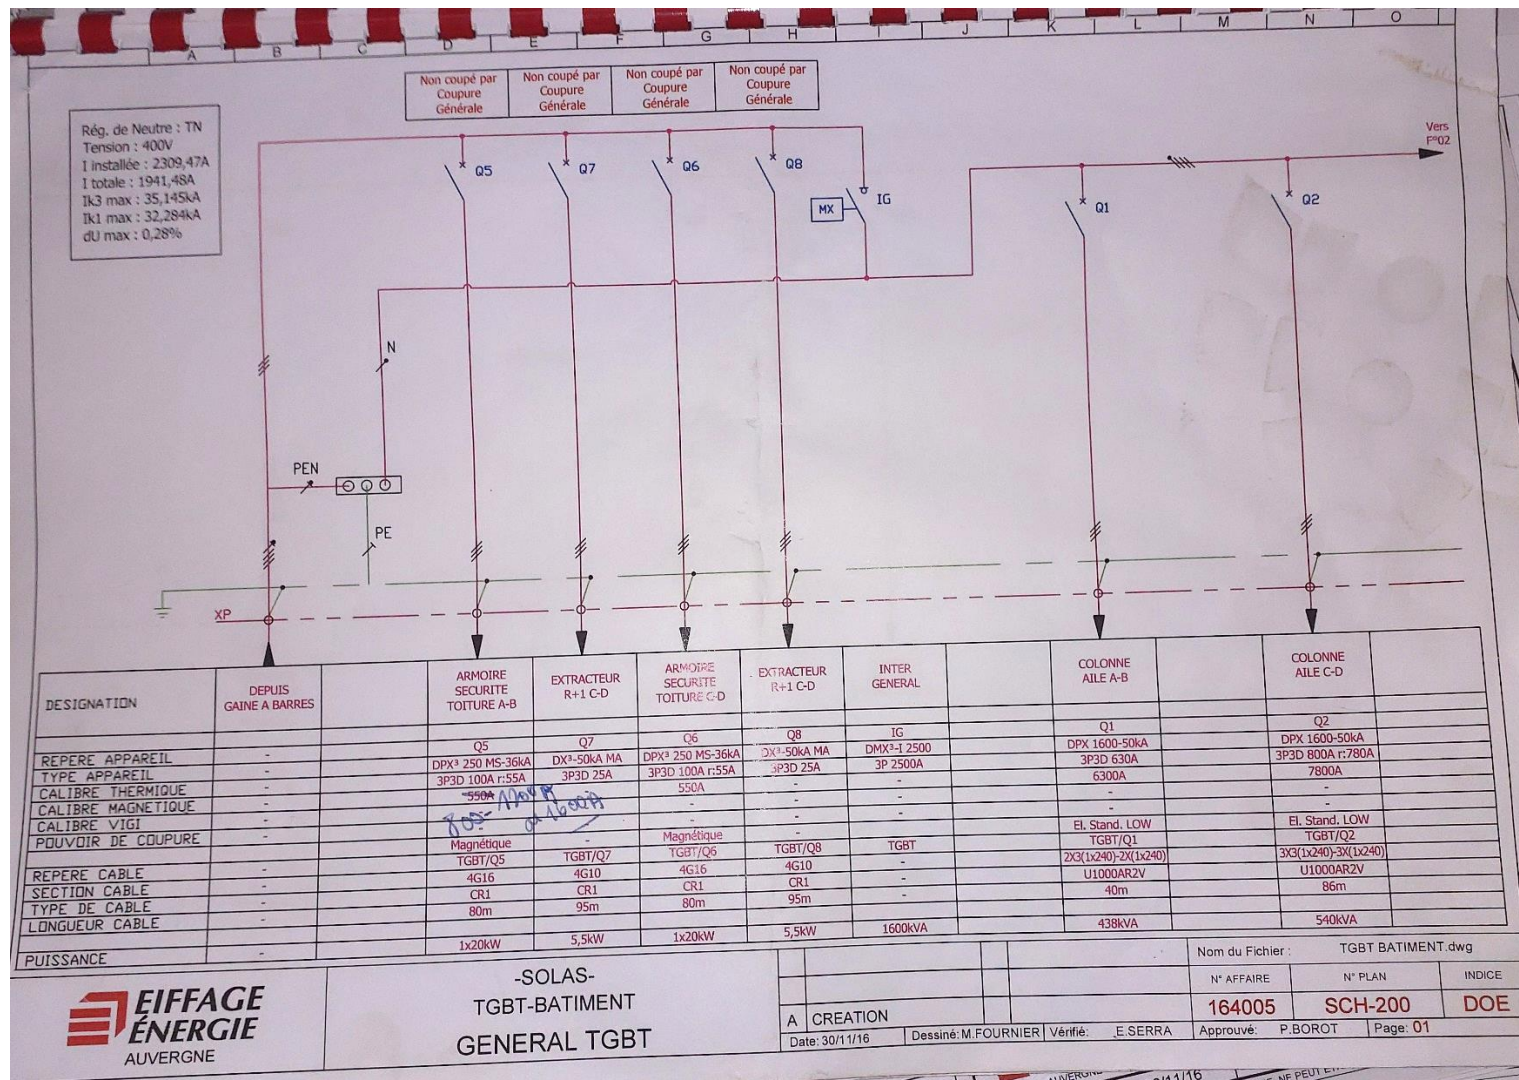 A B C D E F G H I J K L M N O
Non coupé par
Coupure
Générale
Non coupé par
Coupure
Générale
Non coupé par
Coupure
Générale
Non coupé par
Coupure
Générale
Rég. de Neutre : TN
Tension : 400V
I installée : 2309,47A
I totale : 1941,48A
Ik3 max : 35,145kA
Ik1 max : 32,284kA
dU max : 0,28%
Vers
F°02
Q5 Q7 Q6 Q8
MX IG
Q1 Q2
N
PEN
PE
XP
DESIGNATION
DEPUIS
GAINE A BARRES
ARMOIRE
SECURITE
TOITURE A-B
EXTRACTEUR
R+1 C-D
ARMOIRE
SECURITE
TOITURE C-D
EXTRACTEUR
R+1 C-D
INTER
GENERAL
COLONNE
AILE A-B
COLONNE
AILE C-D
REPERE APPAREIL - Q5 Q7 Q6 Q8 IG Q1 Q2
TYPE APPAREIL - DPX³ 250 MS-36kA DX³-50kA MA DPX³ 250 MS-36kA DX³-50kA MA DMX³-I 2500 DPX 1600-50kA DPX 1600-50kA
CALIBRE THERMIQUE - 3P3D 100A r:55A 3P3D 25A 3P3D 100A r:55A 3P3D 25A 3P 2500A 3P3D 630A 3P3D 800A r:780A
CALIBRE MAGNETIQUE - 550A - 550A - - 6300A 7800A
800- 1200A
CALIBRE VIGI - - - - - -
1600A
POUVOIR DE COUPURE - - - - - -
Magnétique - Magnétique - - El. Stand. LOW El. Stand. LOW
REPERE CABLE - TGBT/Q5 TGBT/Q7 TGBT/Q6 TGBT/Q8 TGBT TGBT/Q1 TGBT/Q2
SECTION CABLE - 4G16 4G10 4G16 4G10 - 2X3(1x240)-2X(1x240) 3X3(1x240)-3X(1x240)
TYPE DE CABLE - CR1 CR1 CR1 CR1 - U1000AR2V U1000AR2V
LONGUEUR CABLE - 80m 95m 80m 95m - 40m 86m
PUISSANCE - 1x20kW 5,5kW 1x20kW 5,5kW 1600kVA 438kVA 540kVA
EIFFAGE
ÉNERGIE
AUVERGNE
-SOLAS-
TGBT-BATIMENT
GENERAL TGBT
A CREATION
Date: 30/11/16 Dessiné: M.FOURNIER Vérifié: E.SERRA Approuvé: P.BOROT Page: 01
Nom du Fichier : TGBT BATIMENT.dwg
N° AFFAIRE N° PLAN INDICE
164005 SCH-200 DOE